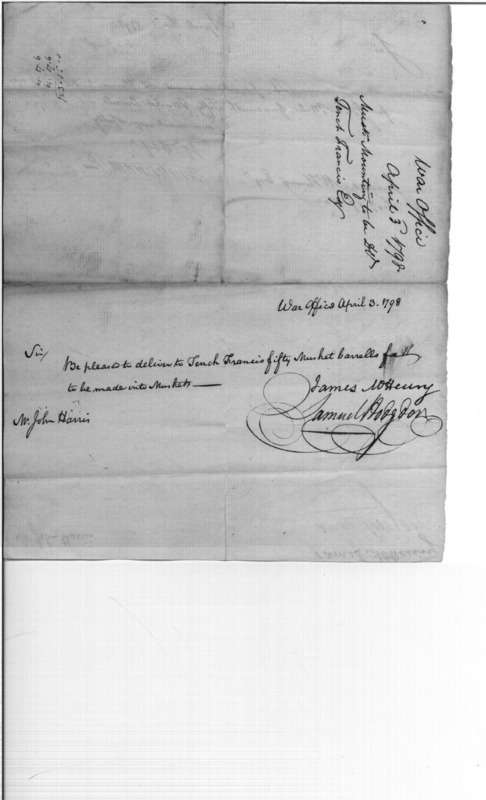 War Office
April 3 1798
Musk. Mounting to be Dd
Tench Francis Esqr
War Office April 3. 1798
Sir/
Be pleased to deliver to Tench Francis fifty Musket barrells
to be made into Muskets —
James McHenry
Samuel Hodgdon
Mr John Harris